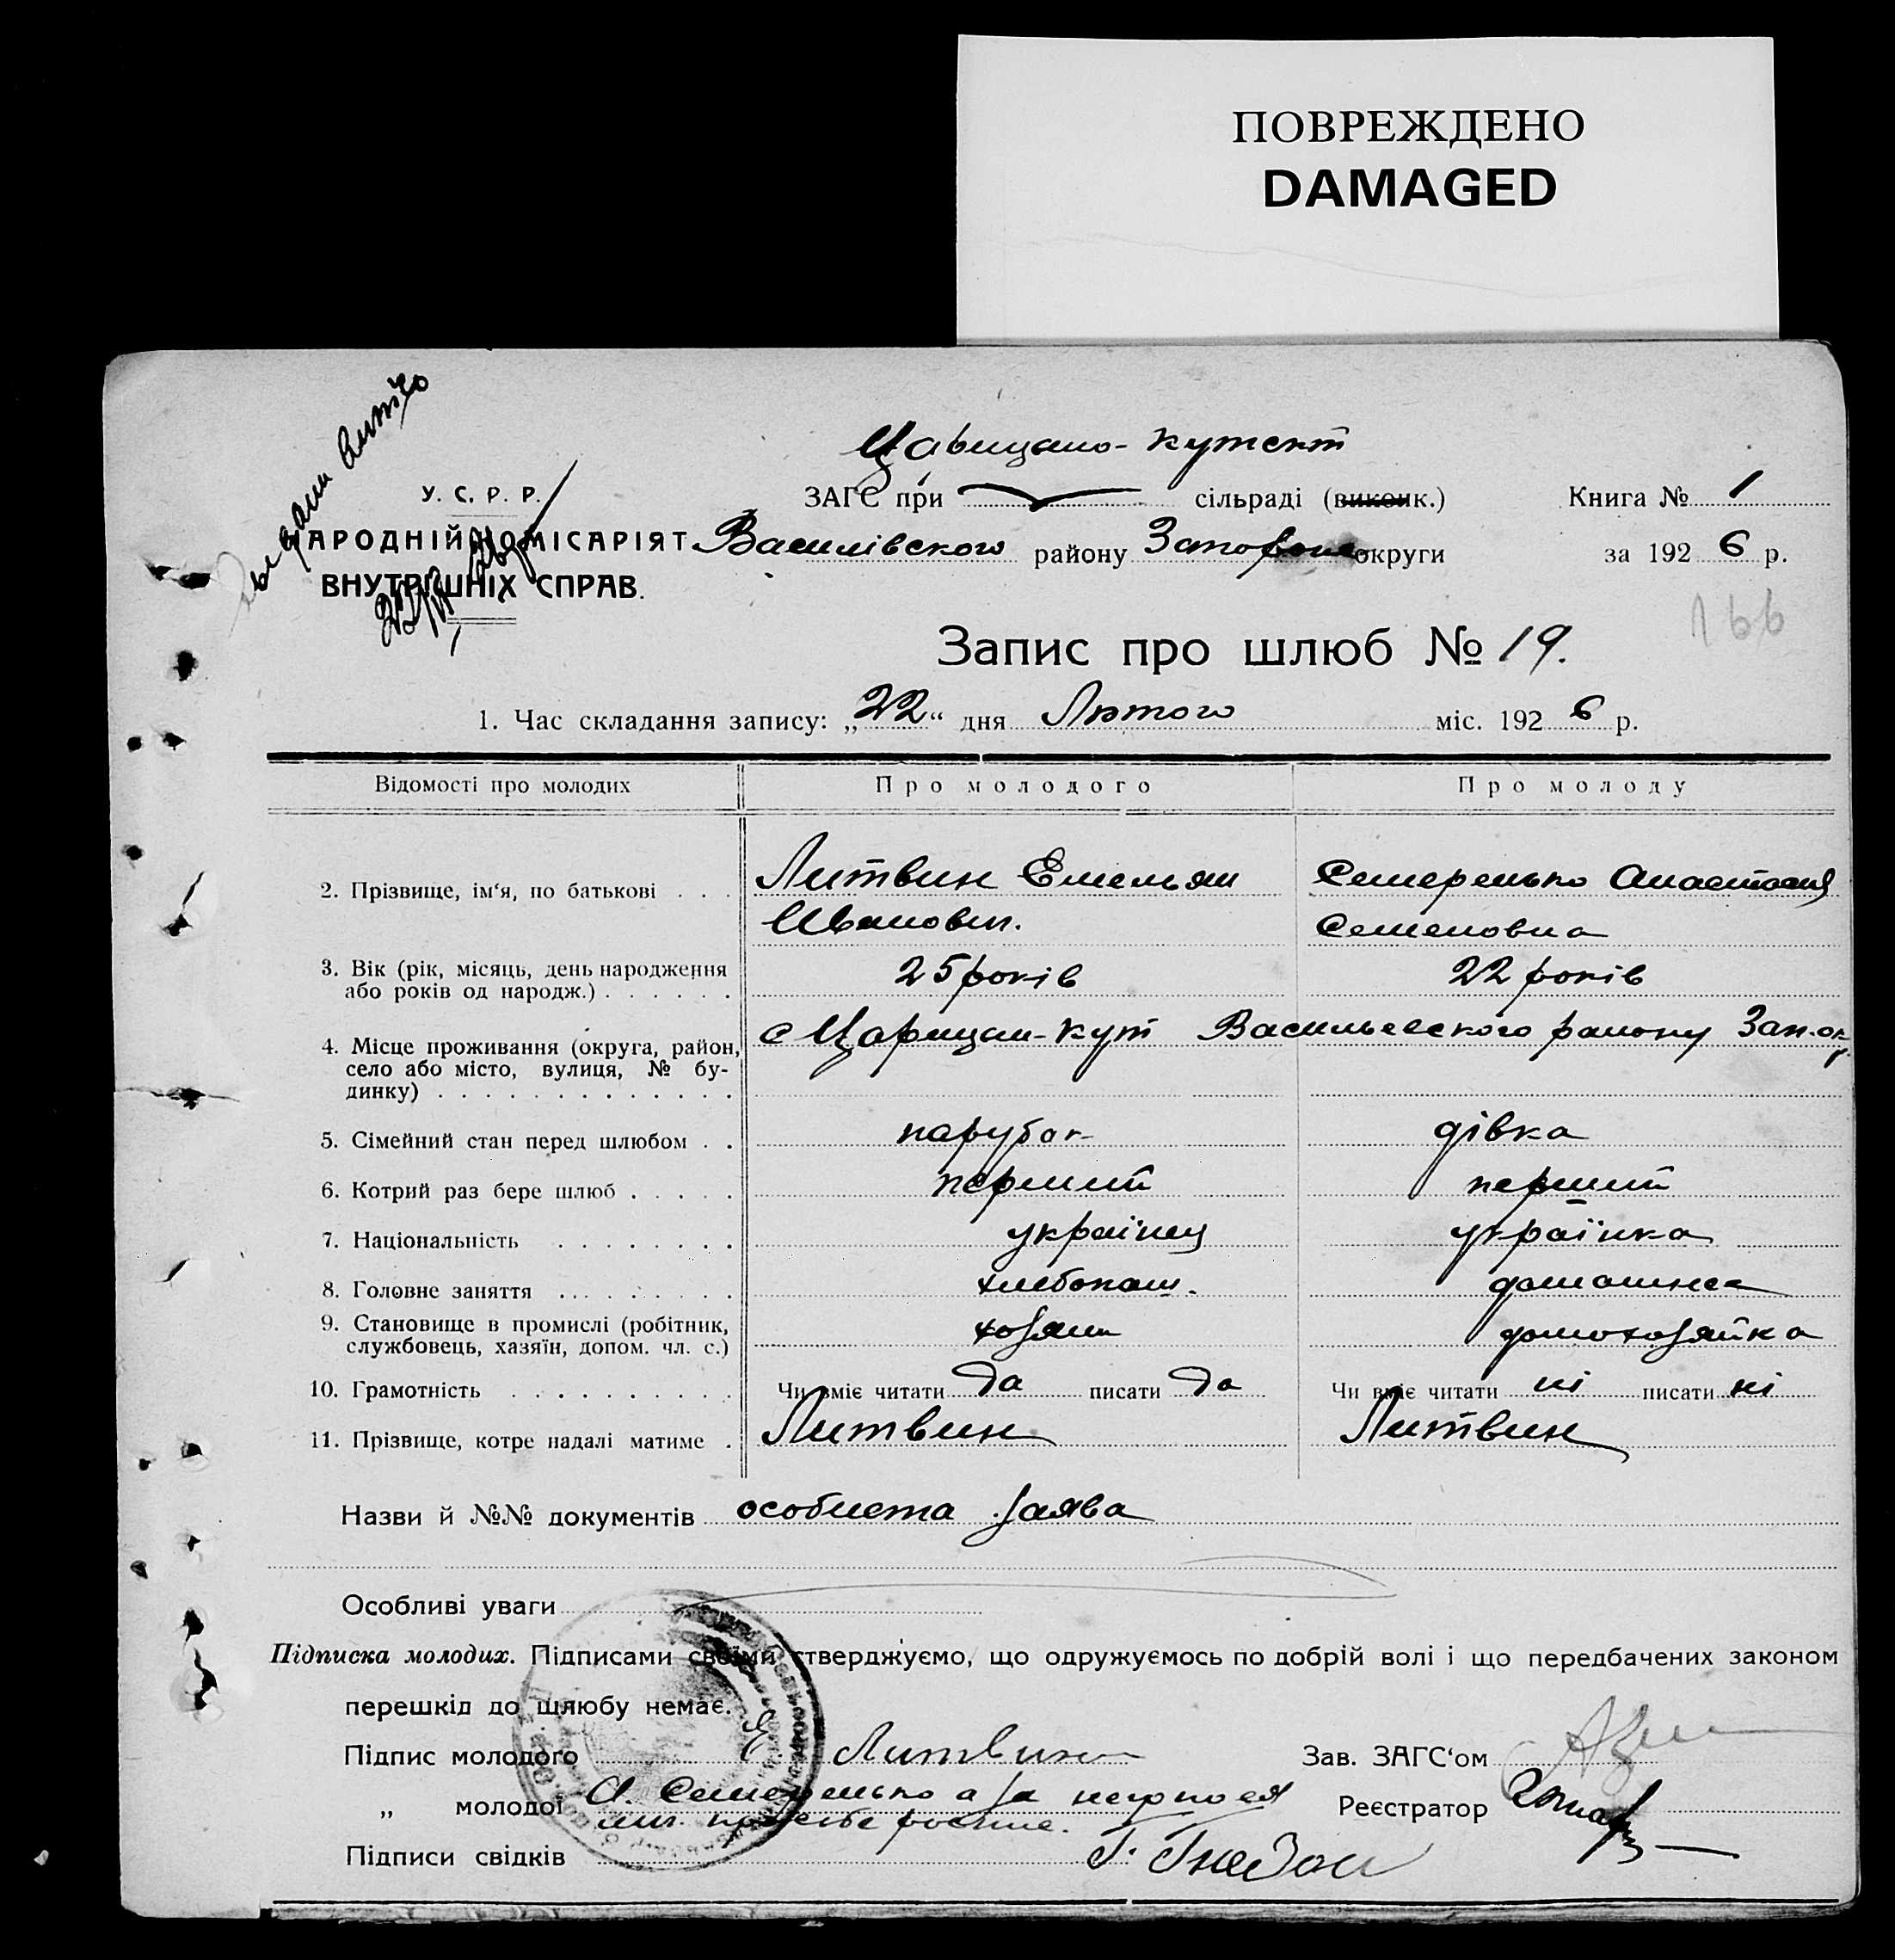 ПОВРЕЖДЕНО
DAMAGED
Царицано-Кутскт
У. С. Р. Р.
ЗАГС при сільраді (виконк.) Книга № 1
НАРОДНІЙ КОМІСАРІЯТ Василівского району Запорож округи за 192 6 р.
ВНУТРІШНІХ СПРАВ.
166
Запис про шлюб № 19.
1. Час складання запису: „22“ дня Лютого міс. 192 6 р.
Відомості про молодих Про молодого Про молоду
2. Прізвище, ім‘я, по батькові . . . Литвин Емельян Семеренько Анастасия
Иванович. Семеновна
3. Вік (рік, місяць, день народження або років од народж.) . . . . . . 25 років 22 років
4. Місце проживання (округа, район, село або місто, вулиця, № будинку) . . . . . . . . . . . . . с Царицын-Кут Васильевского району Зап.ок
5. Сімейний стан перед шлюбом . . парубок дівка
6. Котрий раз бере шлюб . . . . . перший перший
7. Національність . . . . . . . . українец українка
8. Головне заняття . . . . . . . . хлебопаш. домашнее
9. Становище в промислі (робітник, службовець, хазяїн, допом. чл. с.) хозяин домохозяйка
10. Грамотність . . . . . . . . . . Чи вміє читати да писати да Чи вміє читати ні писати ні
11. Прізвище, котре надалі матиме . Литвин Литвин
Назви й №№ документів особиста заява
Особливі уваги
Підписка молодих. Підписами своїми стверджуємо, що одружуємось по добрій волі і що передбачених законом
перешкід до шлюбу немає.
Підпис молодого Е. Литвин Зав. ЗАГС‘ом
„ молодої А. Семеренько а за негр по ея Реєстратор
просьбе
Підписи свідків Г.